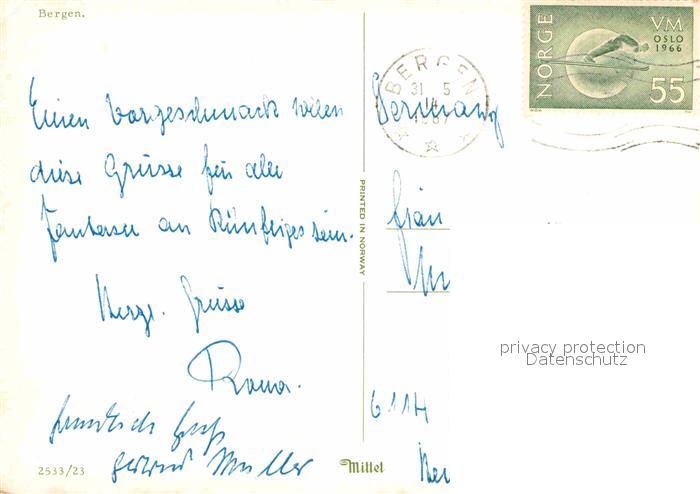 Bergen.
NORGE
VM
OSLO
1966
55
BERGEN
31 5
14
1967
Einen Vorgeschmack sollen
Germany
diese Grüsse für die
Fantasie an Künftiges sein.
Frau
PRINTED IN NORWAY
Herzl. Grüsse
privacy protection
Datenschutz
6114
Gertrud Müller
2533/23
Mittet